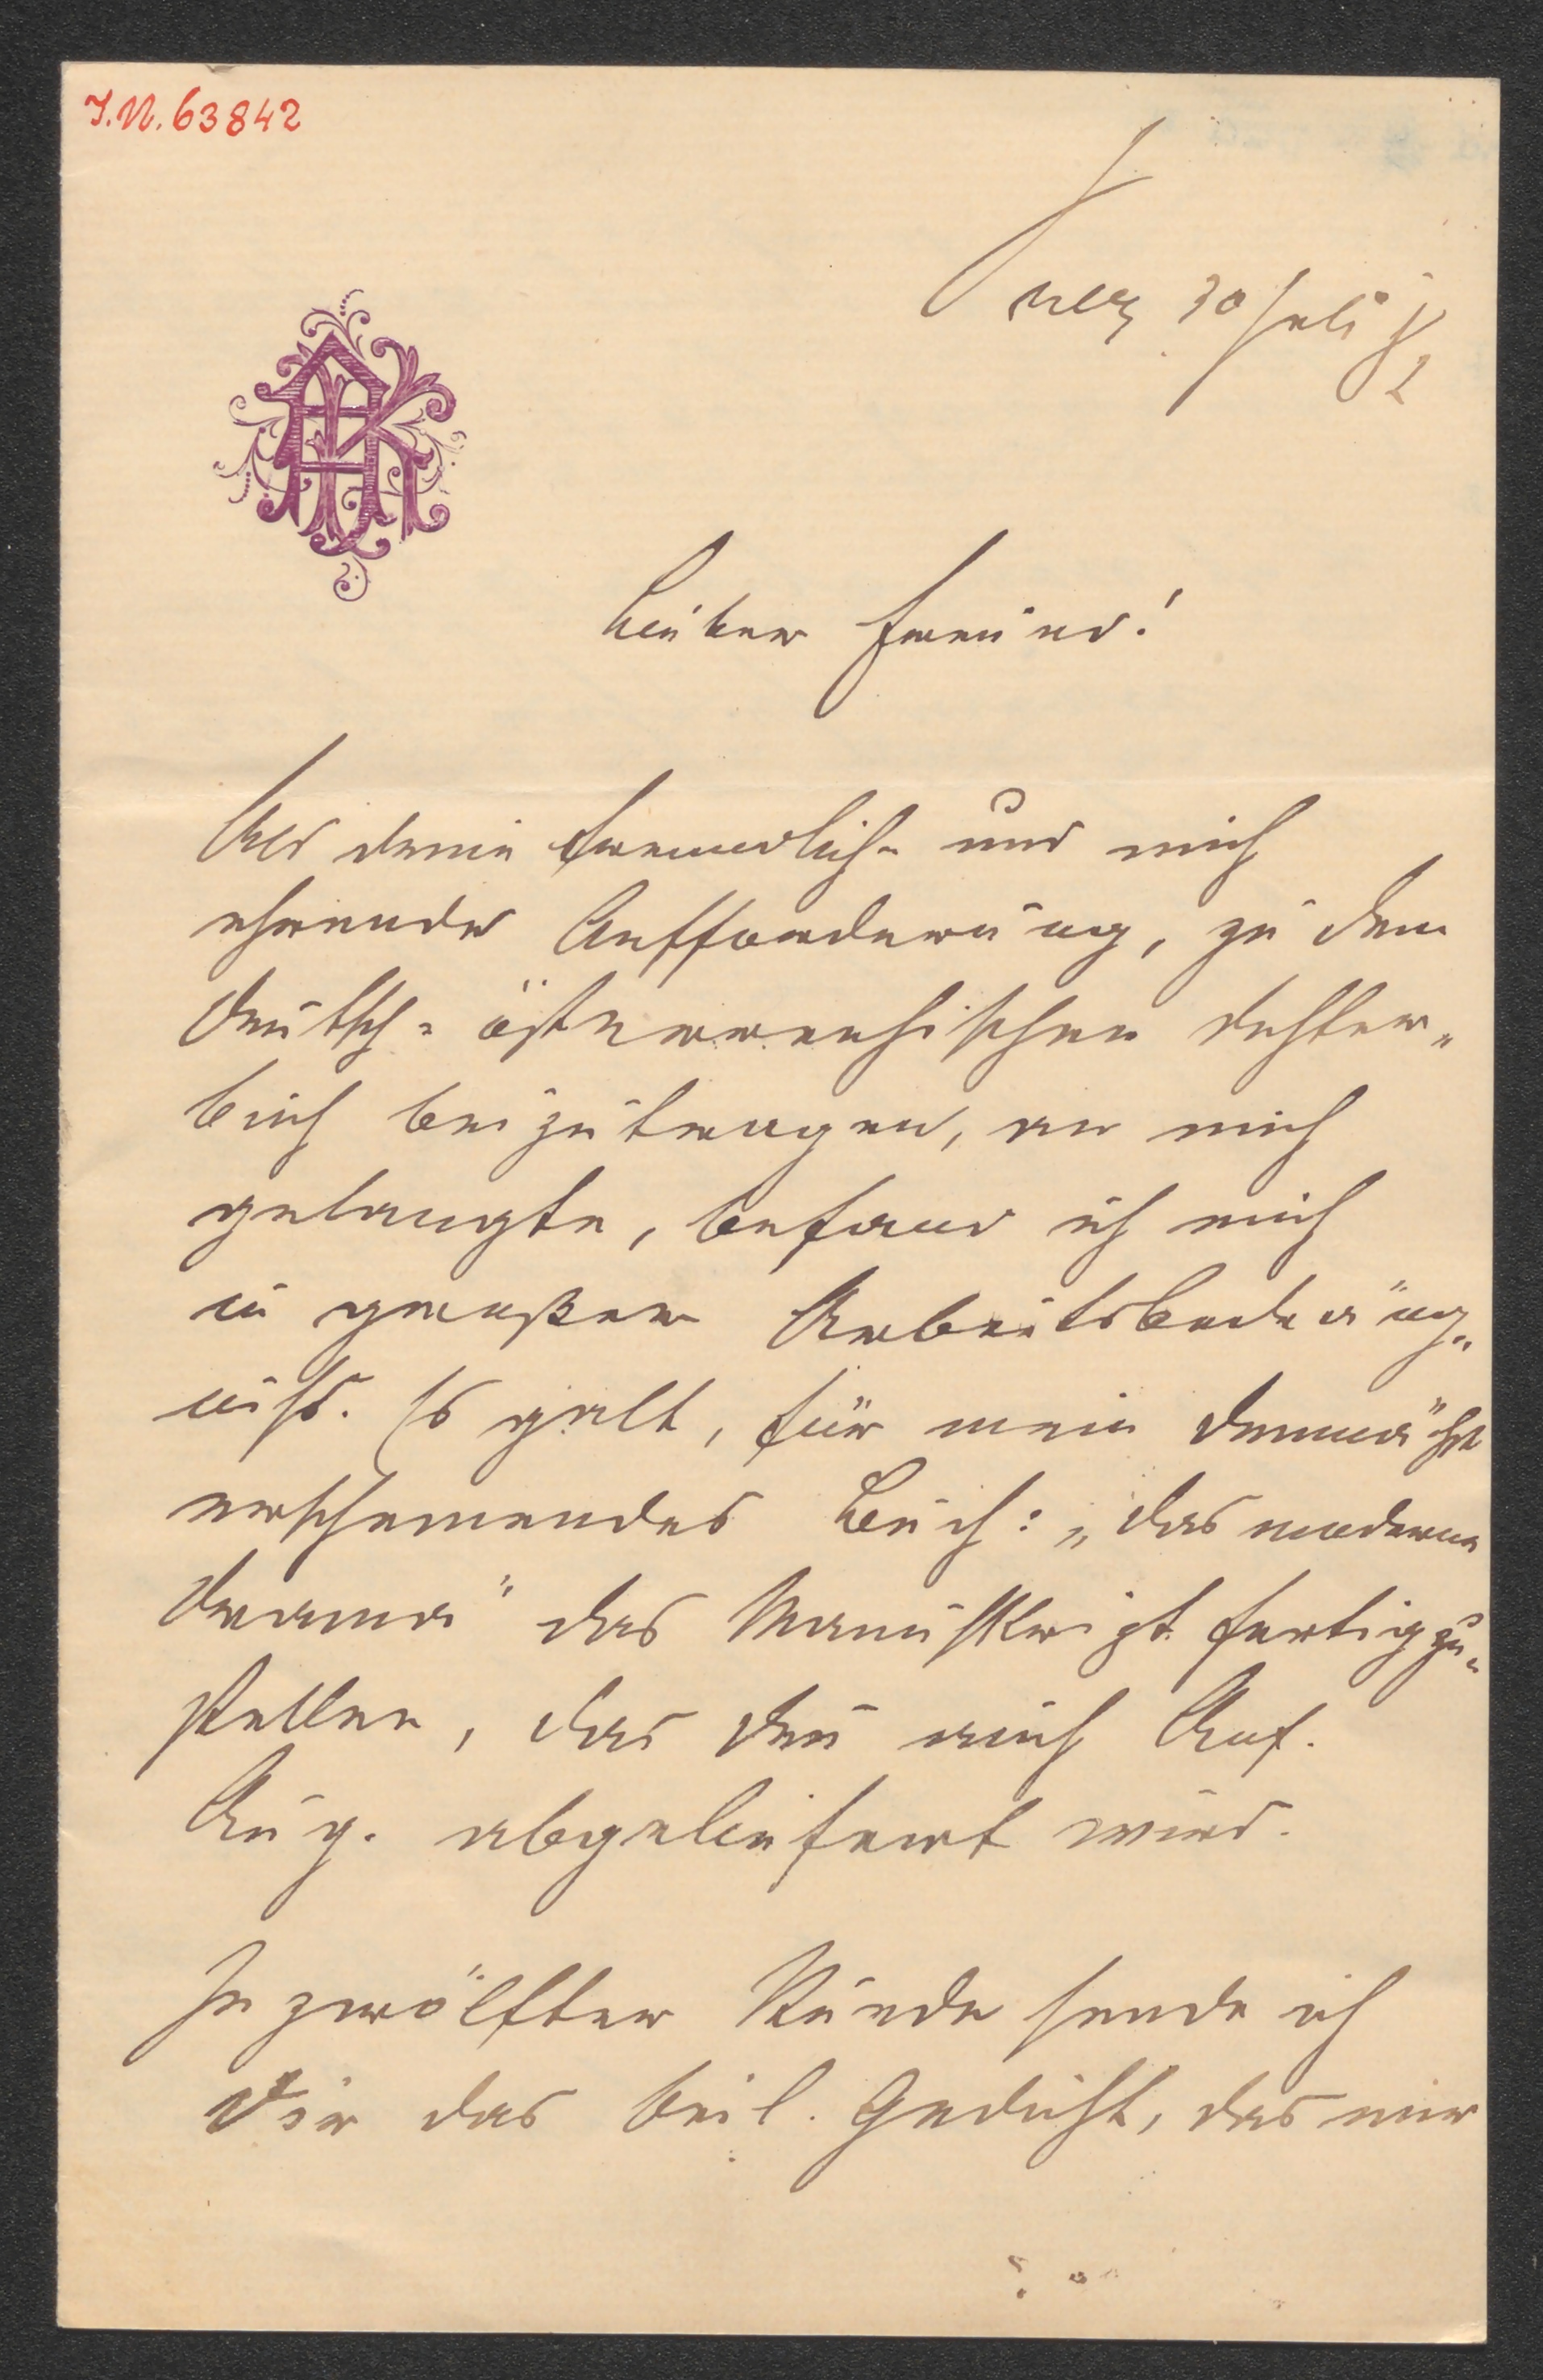 I.N. 63842
30 Juli
Lieber Freund!
Als deine freundliche und mich
ehrende Aufforderung, zu dem
deutsch-österreichischen Dichter-
buch beizutragen, an mich
gelangte, befand ich mich
in großer Arbeitsbedräng-
niß. Es galt, für mein demnächst
erscheinendes Buch: „das moderne
Drama" das Manuskript fertigzu-
stellen, das denn auch Anf.
Aug. abgeliefert wird.
In zwölfter Stunde sende ich
Dir das beil. Gedicht, das mir